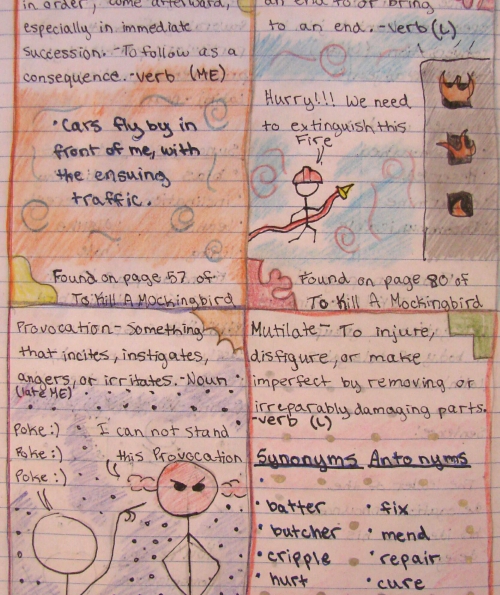 in order, come afterward,
especially in immediate
succession. - To follow as a
consequence. -verb (ME)
•Cars fly by in
front of me, with
the ensuing
traffic.
Found on page 57 of
To Kill A Mockingbird
an end to or bring
to an end. -verb (L)
Hurry!!! We need
to extinguish this
Fire
Found on page 80 of
To Kill A Mockingbird
Provocation- Something
that incites, instigates,
angers, or irritates. -Noun
(late ME)
Poke :)
Poke :)
Poke :)
I can not stand
this Provocation
Mutilate- To injure,
disfigure, or make
imperfect by removing or
irreparably damaging parts.
-verb (L)
Synonyms Antonyms
• batter • fix
• butcher • mend
• cripple • repair
• hurt • cure